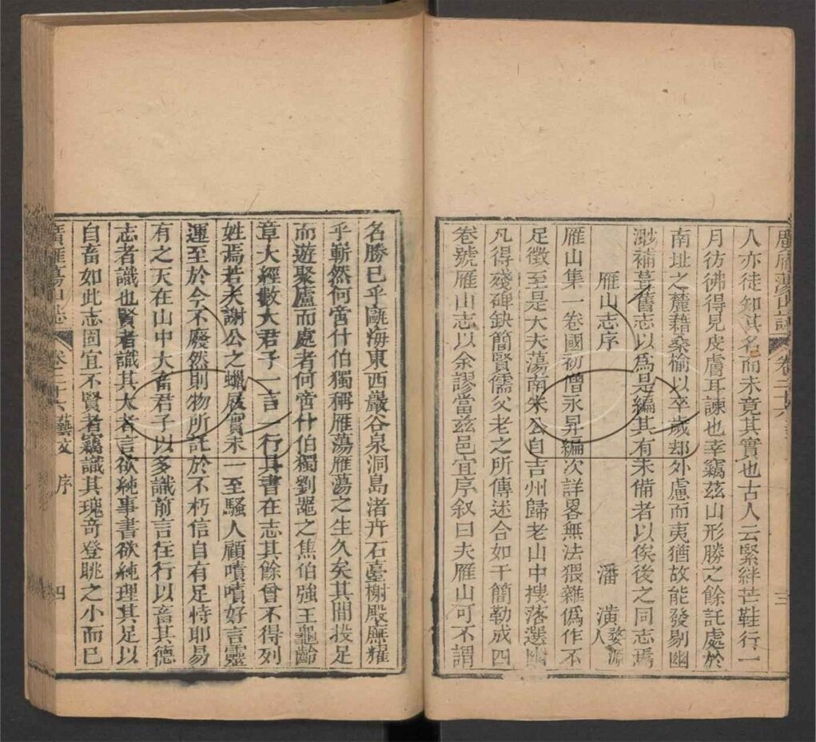 廣雁蕩山誌 卷二十六 三
人亦徒知其名而未竟其實也古人云緊絆芒鞋行一
月彷彿得見皮膚耳諫也幸竊茲山形勝之餘託處於
南址之麓藉桑榆以卒歲却外慮而夷猶故能發剔幽
渺補葺舊志以為是編其有未備者以俟後之同志焉
雁山志序 潘潢婺源人
雁山集一卷國初僧永昇編次詳畧無法猥雜僞作不
足徵至是大夫蕩南朱公自吉州歸老山中搜落選幽
凡得殘碑缺簡賢儒父老之所傳述合如干簡勒成四
卷號雁山志以余謬當茲邑宜序叙曰夫雁山可不謂
名勝已乎甌海東西巖谷泉洞島渚卉石臺榭殿廡耀
乎嶄然何啻什伯獨稱雁蕩雁蕩之生久矣其間投足
而遊聚廬而處者何啻什伯獨劉鼌之焦伯強王龜齡
章大經數大君子一言一行其書在志其餘曾不得列
姓焉若夫謝公之蠟屐實未一至騷人顧嘖嘖好言靈
運至於今不廢然則物所託於不朽信自有足恃耶易
有之天在山中大畜君子以多識前言往行以畜其德
志者識也賢者識其大者言欲純事書欲純理其足以
自畜如此志固宜不賢者竊識其瑰奇登眺之小而已
廣雁蕩山誌 卷二十六 藝文 序 四